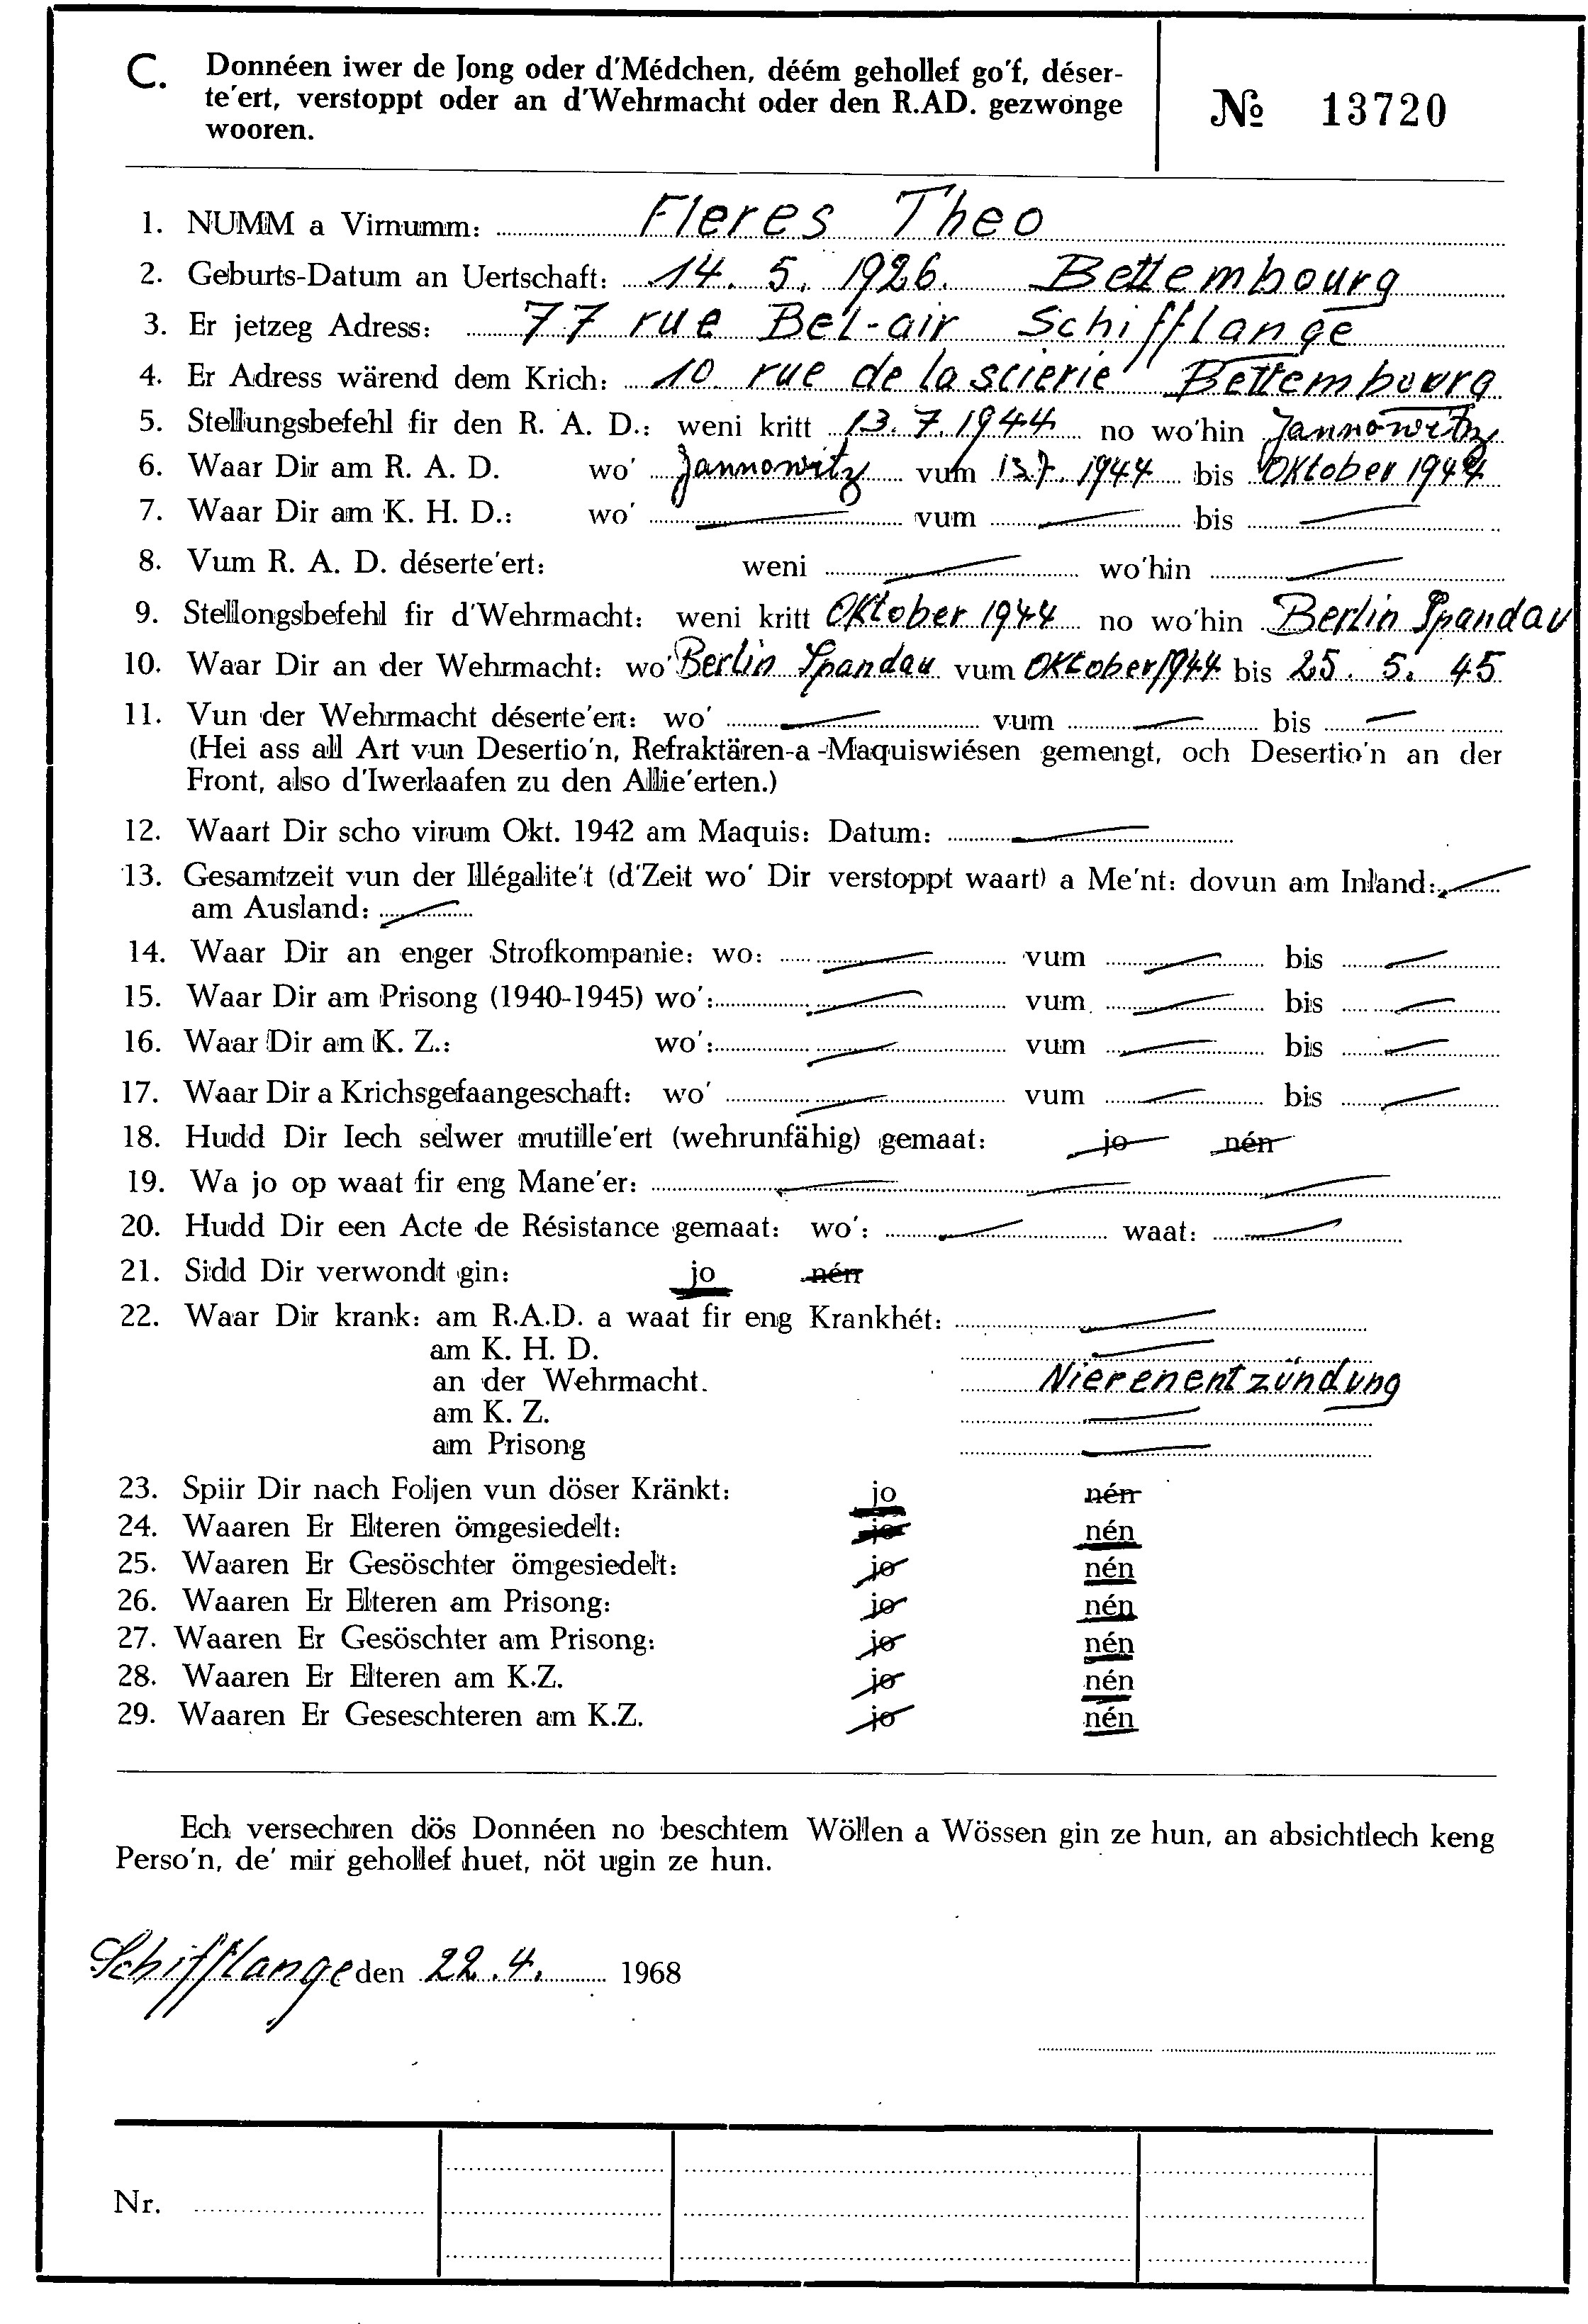 C. Donnéen iwer de Jong oder d'Médchen, déém gehollef go'f, déser-
te'ert, verstoppt oder an d'Wehrmacht oder den R.AD. gezwonge
wooren.
№ 13720
1. NUMM a Virnumm: Fleres Theo
2. Geburts-Datum an Uertschaft: 14. 5. 1926. Bettembourg
3. Er jetzeg Adress: 77 rue Bel-air Schifflange
4. Er Adress wärend dem Krich: 10 rue de la scierie Bettembourg
5. Stellungsbefehl fir den R. A. D.: weni kritt 13.7.1944 no wo'hin Jannowitz
6. Waar Dir am R. A. D. wo' Jannowitz vum 13.7.1944 bis Oktober 1944
7. Waar Dir am K. H. D.: wo' vum bis
8. Vum R. A. D. déserte'ert: weni wo'hin
9. Stellongsbefehl fir d'Wehrmacht: weni kritt Oktober 1944 no wo'hin Berlin Spandau
10. Waar Dir an der Wehrmacht: wo' Berlin Spandau vum Oktober 1944 bis 25. 5. 45
11. Vun der Wehrmacht déserte'ert: wo' vum bis
(Hei ass all Art vun Desertio'n, Refraktären-a-Maquiswiésen gemengt, och Desertio'n an der
Front, also d'Iwerlaafen zu den Allie'erten.)
12. Waart Dir scho virum Okt. 1942 am Maquis: Datum:
13. Gesamtzeit vun der Illégalite't (d'Zeit wo' Dir verstoppt waart) a Me'nt: dovun am Inland:
am Ausland:
14. Waar Dir an enger Strofkompanie: wo: vum bis
15. Waar Dir am Prisong (1940-1945) wo': vum bis
16. Waar Dir am K. Z.: wo': vum bis
17. Waar Dir a Krichsgefaangeschaft: wo' vum bis
18. Hudd Dir Iech selwer mutille'ert (wehrunfähig) gemaat: jo nén
19. Wa jo op waat fir eng Mane'er:
20. Hudd Dir een Acte de Résistance gemaat: wo': waat:
21. Sidd Dir verwondt gin: jo nén
22. Waar Dir krank: am R.A.D. a waat fir eng Krankhét:
am K. H. D.
an der Wehrmacht. Nierenentzündung
am K. Z.
am Prisong
23. Spiir Dir nach Foljen vun döser Kränkt: jo nén
24. Waaren Er Elteren ömgesiedelt: jo nén
25. Waaren Er Gesöschter ömgesiedelt: jo nén
26. Waaren Er Elteren am Prisong: jo nén
27. Waaren Er Gesöschter am Prisong: jo nén
28. Waaren Er Elteren am K.Z. jo nén
29. Waaren Er Geseschteren am K.Z. jo nén
Ech versechren dös Donnéen no beschtem Wöllen a Wössen gin ze hun, an absichtlech keng
Perso'n, de' mir gehollef huet, nöt ugin ze hun.
Schifflange den 22.4. 1968
Nr.